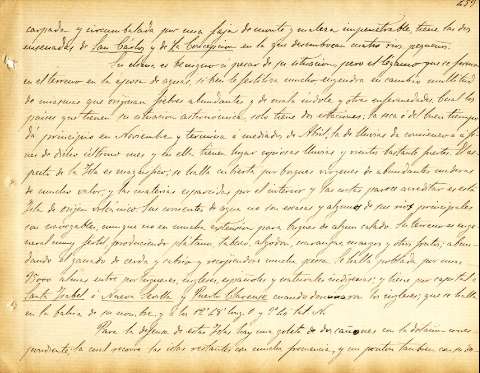 459
carpada y circumbalada por una faja de monte y maleza impenetrable, tiene las dos
ensenadas de San Carlos y de la Concepcion en la que desembocan cuatro rios pequeños.
Su clima es benigno a pesar de su situacion, pero el légamo que se forma
en el terreno en la epoca de aguas, si bien le fertiliza mucho engendra en cambio multitud
de miasmas que originan fiebres abundantes y de mala indole y otras enfermedades. Cual los
paises que tienen su situacion astronomica, solo tiene dos estaciones, la seca ó del buen tiempo
dá principio en Noviembre y termina á mediados de Abril, la de lluvias da comienzo a fi-
nes de dicho último mes y en ella tienen lugar copiosas lluvias y vientos bastante fuertes. El as-
pecto de la Isla es magnifico; se halla cubierta por bosques virgenes de abundantes maderas
de mucho valor y las materias esparcidas por el interior y las costas parece acreditar es esta
Isla de origen volcánico. Las corrientes de agua no son escasas y algunos de sus rios principales
son navegables, aunque no en mucha extension para buques de algun calado. Su terreno es en ge-
neral muy fertil, produciendo platano, tabaco, algodon, naranjas, mangos y otros frutos; abun-
dando el ganado de cerda y cabrio y recogiendose mucha pesca. Se halla poblada por unas
almas entre portugueses, ingleses, españoles y naturales indigenas; y tiene por capital a
Santa Isabel ó Nueva Sevilla y Puerto Clarence cuando dominaron los ingleses; que se halla
en la bahia de su nombre, y a los
Para la defensa de estas Islas hay una goleta de dos cañones en la dotacion corres-
pondiente, la cual recorre las islas restantes con mucha frecuencia, y un ponton tambien con su do-